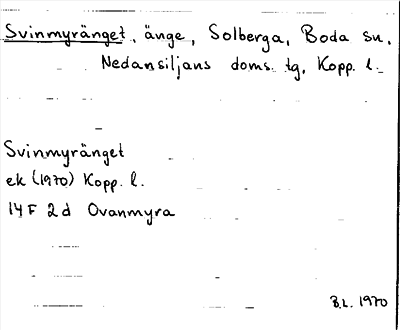 Svinmyränget, änge, Solberga, Boda sn,
Nedansiljans doms. tg, Kopp. l.
Svinmyränget
ek (1970) Kopp. l.
14 F 2 d Ovanmyra
B.L. 1970